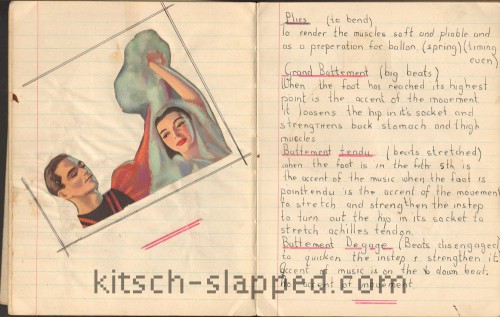 Plies (to bend)
To render the muscles soft and pliable and
as a preperation for ballon (spring) (timing
even)
Grand Battement (big beats)
When the foot has reached its highest
point is the accent of the movement
It loosens the hip in it's socket and
strengthens back stomach and thigh
muscles
Battement tendu (beats stretched)
when the foot is in the fifth 5th is
the accent of the music when the foot is
pointtendu is the accent of the movement
to stretch and strengthen the instep
to turn out the hip in its socket to
stretch achilles tendon.
Battement Degage (Beats disengaged)
to quicken the instep & strengthen it
accent of music is on the down beat.
no accent of movement
kitsch-slapped.com